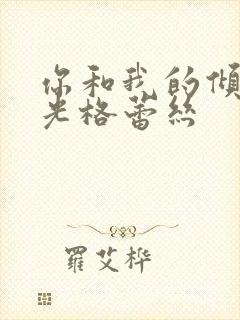 你和我的倾
光格蕾丝
羅艾桦